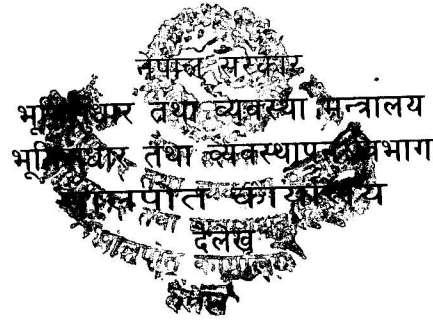 नेपाल सरकार
भूमिसुधार तथा व्यवस्था मन्त्रालय
भूमिसुधार तथा व्यवस्था विभाग
मालपोत कार्यालय
दैलेख